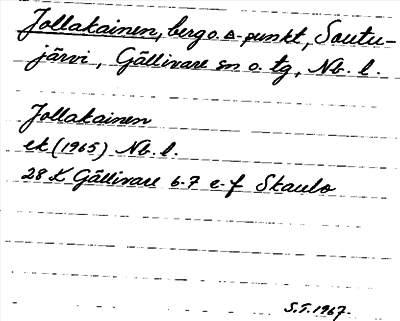 Jollakainen, berg o. △-punkt, Soutu-
järvi, Gällivare sn o. tg, Nb. l.
Jollakainen
ek (1965) Nb. l.
28 K Gällivare 6-7 e-f Skaulo
S.F. 1967.